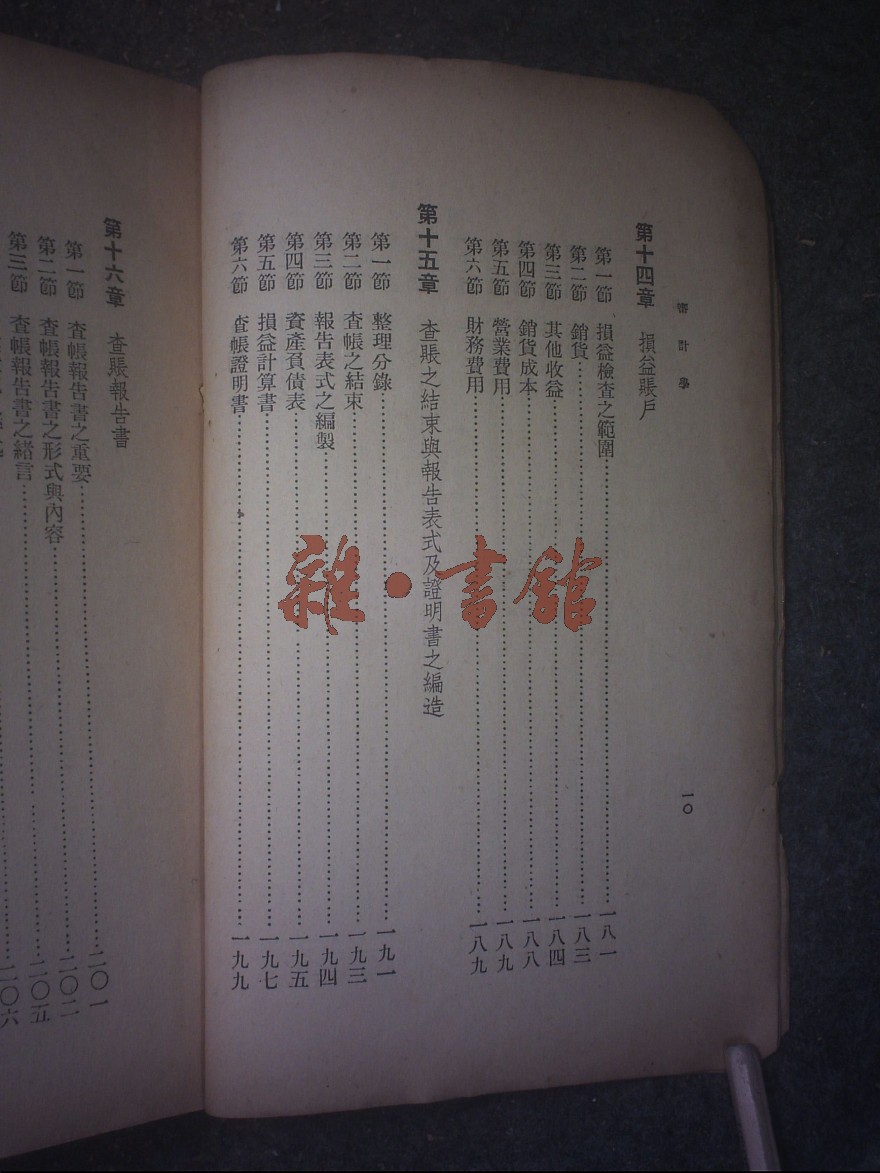 審計學
一〇
第十四章 損益賬戶
第一節 損益檢查之範圍……一八一
第二節 銷貨……一八三
第三節 其他收益……一八四
第四節 銷貨成本……一八八
第五節 營業費用……一八九
第六節 財務費用……一八九
第十五章 查賬之結束與報告表式及證明書之編造
第一節 整理分錄……一九一
第二節 查帳之結束……一九三
第三節 報告表式之編製……一九四
第四節 資產負債表……一九五
第五節 損益計算書……一九七
第六節 查帳證明書……一九九
第十六章 查賬報告書
第一節 查帳報告書之重要……二〇一
第二節 查帳報告書之形式與內容……二〇二
第三節 查帳報告書之緒言……二〇五
二〇六
雜·書館